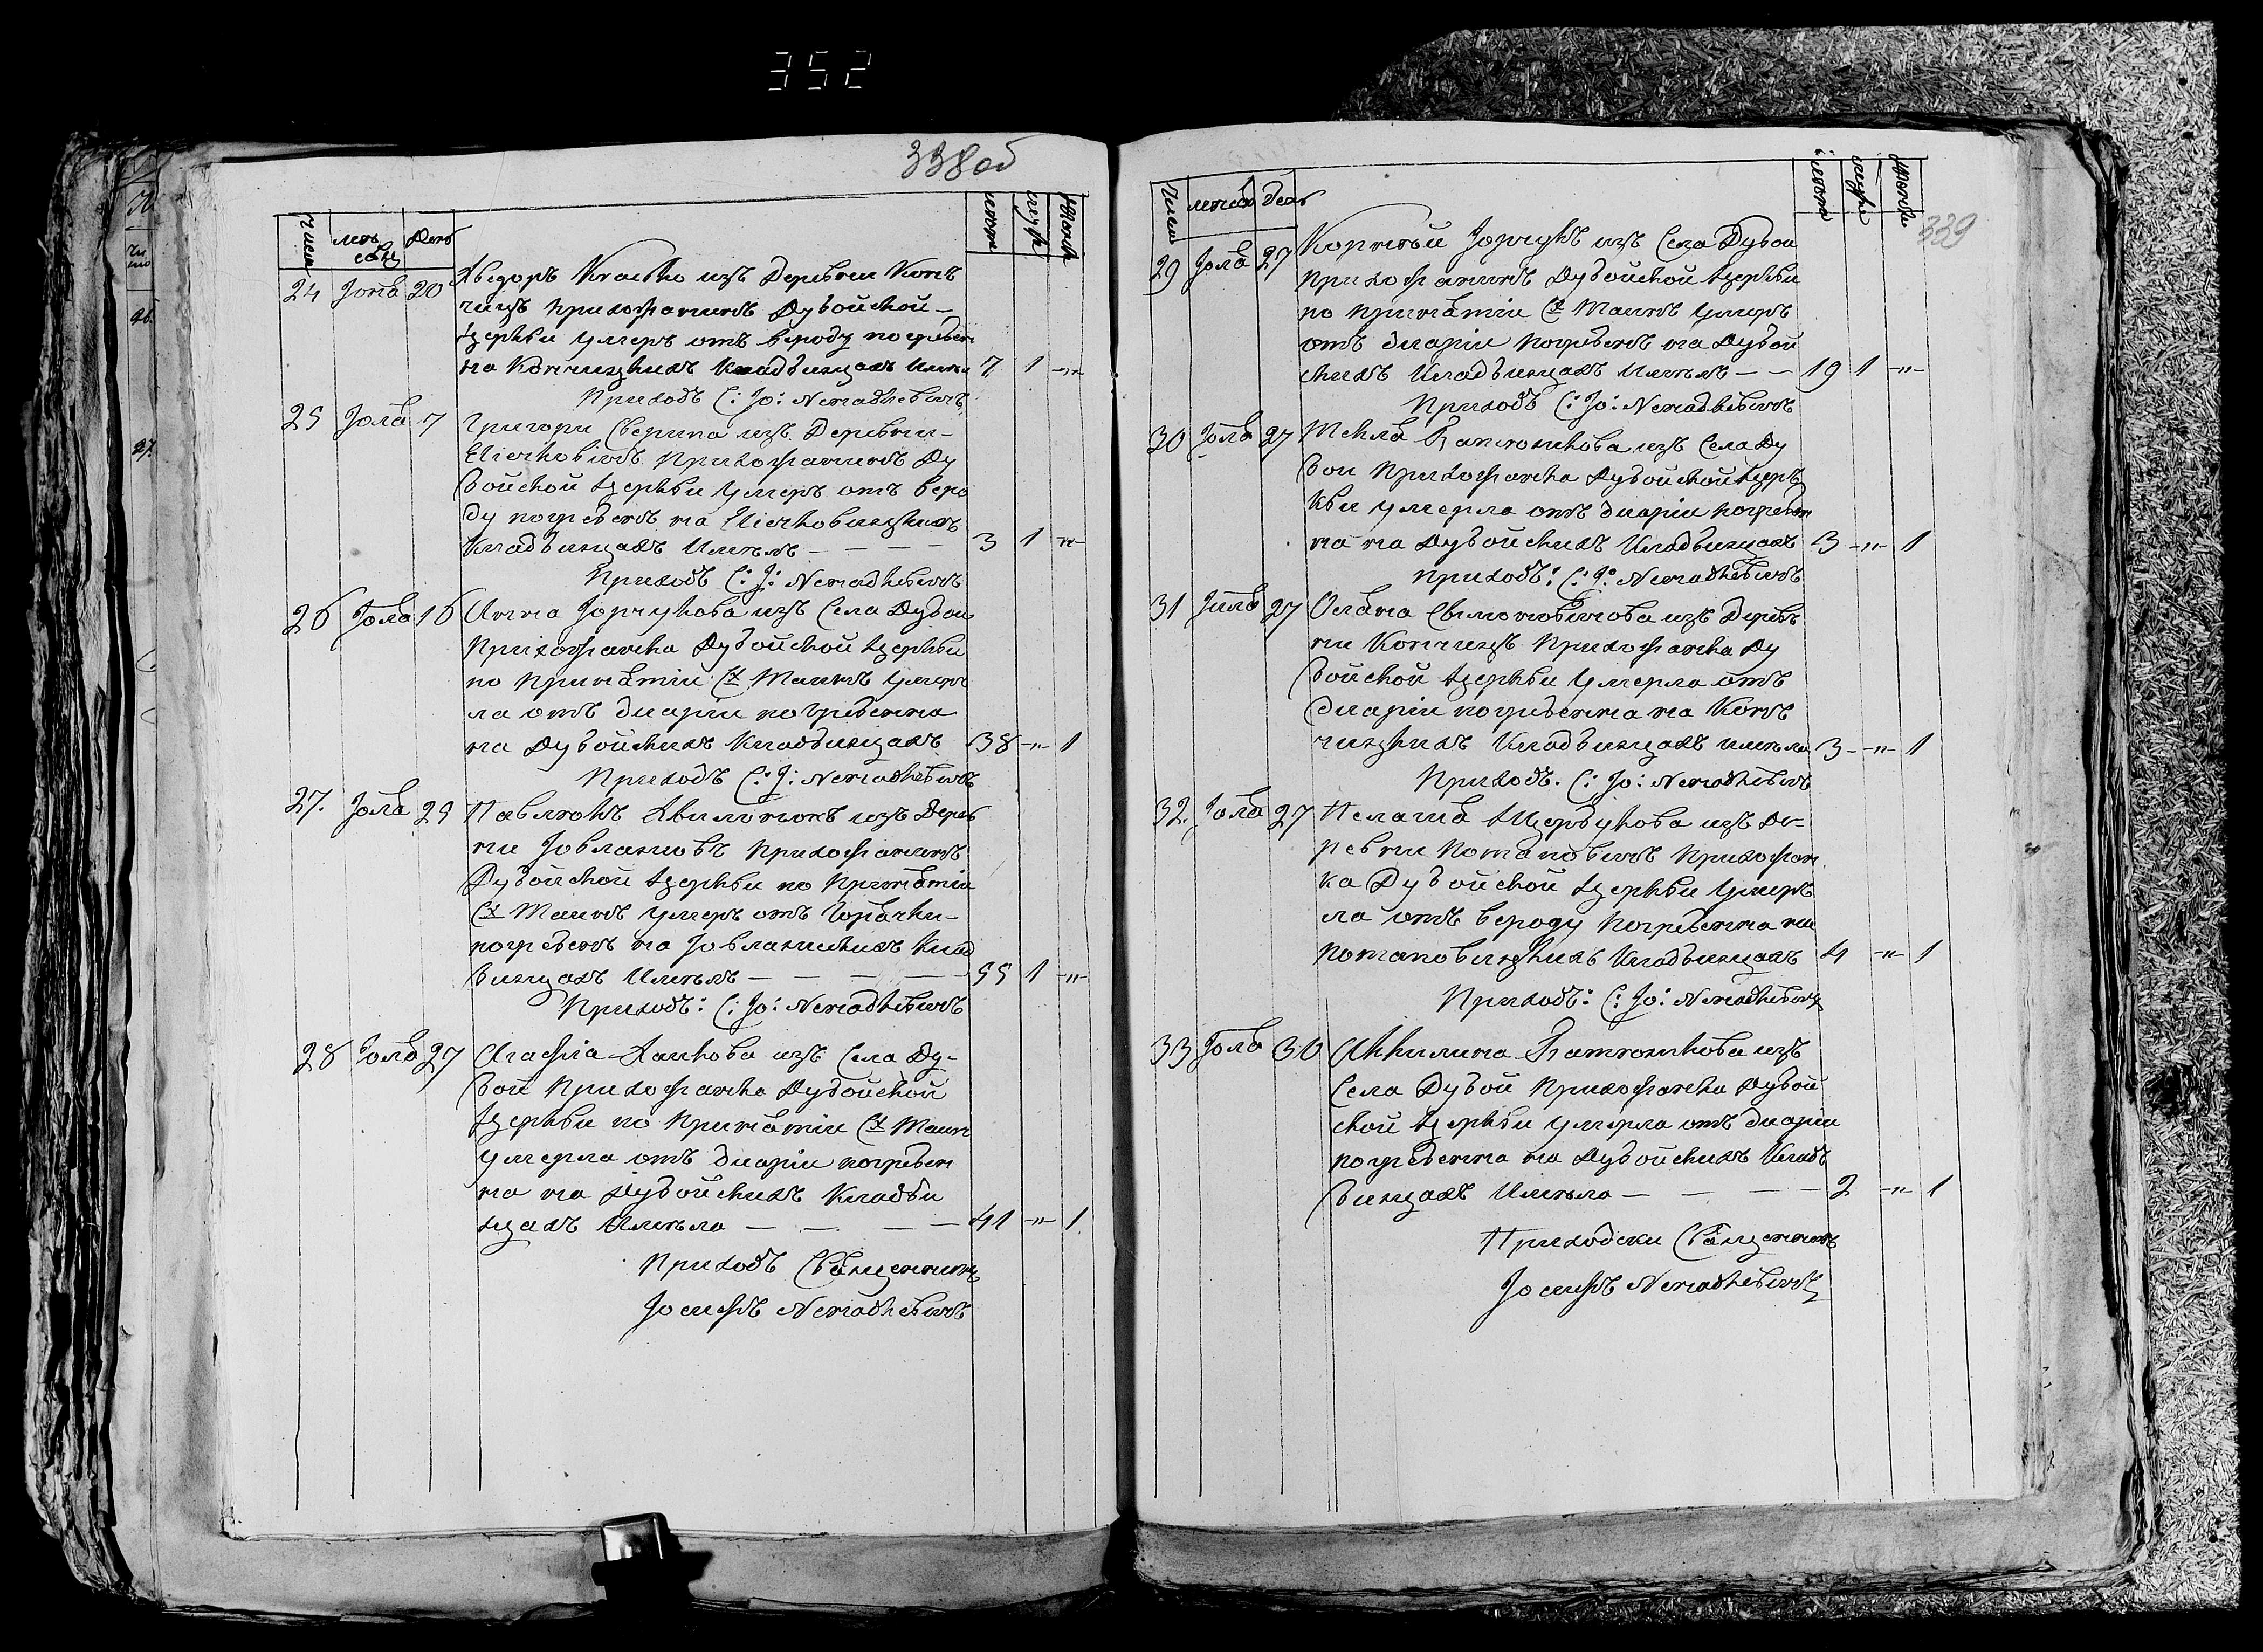 352
338об
число месець день лета мужс женск
24 Іюнѧ 20 Хведоръ из Деревни Кон
чицъ прихожанинъ Дубойской
Церкви умеръ отъ вероду погребен
на Кончицкихъ Кладбищахъ имел 7 1 -"-
Приход С: Іо: Ненадкевичъ
25 Іюлѧ 7 Григори Сверипа изъ Деревни
прихожанинъ Ду
бойской Церкви умеръ отъ веро
ду погребенъ на
Кладбищахъ имелъ 3 1 -"-
Приходъ С: І: Ненадкевичъ
26 Іюлѧ 16 Анна Іорчукова изъ Села Дубои
Прихожанка Дубойской Церкви
по Принѧтіи С:х Таинъ умер
ла отъ диаріи погребенна
на Дубойскихъ Кладбищахъ 38 -"- 1
Приходъ С: І: Ненадкевичъ
27. Іюлѧ 25 Павлюкъ из Дерев
ни прихожанинъ
Дубойской Церкви по Принѧтіи
С:х Таинъ умеръ отъ Горѧчки
погребенъ на Клад
бищахъ имелъ 55 1 -"-
Приходъ: С: Іо: Ненадкевичъ
28 Іюлѧ 27 Агафіа изъ Села Ду-
бои Прихожанка Дубойской
Церкви по Принѧтіи С:х Таин
умерла отъ диаріи погребен
на на Дубойскихъ Кладби
щахъ имела 41 -"- 1
Приходъ Свѧщенникъ
Іосифъ Ненадкевичъ
339
число месець день лета мужс женск
29 Іюлѧ 27 Корнѣй Іорчукъ изъ Села Дубои
прихожанинъ Дубойской Церкви
по принѧтіи С:х Таинъ умеръ
отъ диаріи погребенъ на Дубой
скихъ Кладбищахъ имелъ 19 1 -"-
Приходъ С: Іо: Ненадкевичъ
30 Іюлѧ 27 Теклѧ изъ Села Ду
бои Прихожанка Дубойской Цер
кви умерла отъ диаріи погребен
на на Дубойскихъ Кладбищахъ 3 -"- 1
приходъ: С: І: Ненадкевичъ
31 Іюлѧ 27 изъ Дерев
ни Кончицъ Прихожанка Ду
бойской Церкви умерла отъ
диаріи погребенна на Кон
чицкихъ Кладбищахъ имела 3 -"- 1
Приходъ. С: Іо: Ненадкевичъ
32. Іюлѧ 27 Пелагиѧ изъ Де-
ревни Потаповичъ Прихожан
ка Дубойской Церкви умер
ла отъ вероду Погребенна на
потаповицкихъ Кладбищахъ 4 -"- 1
Приходъ: С: Іо: Ненадкевичъ
33 Іюлѧ 30 Аккилина изъ
Села Дубой Прихожанка Дубой
ской Церкви умерла отъ диаріи
погребенна на Дубойскихъ Клад
бищахъ имела 2 -"- 1
Приходски Свѧщенникъ
Іосифъ Ненадкевичъ